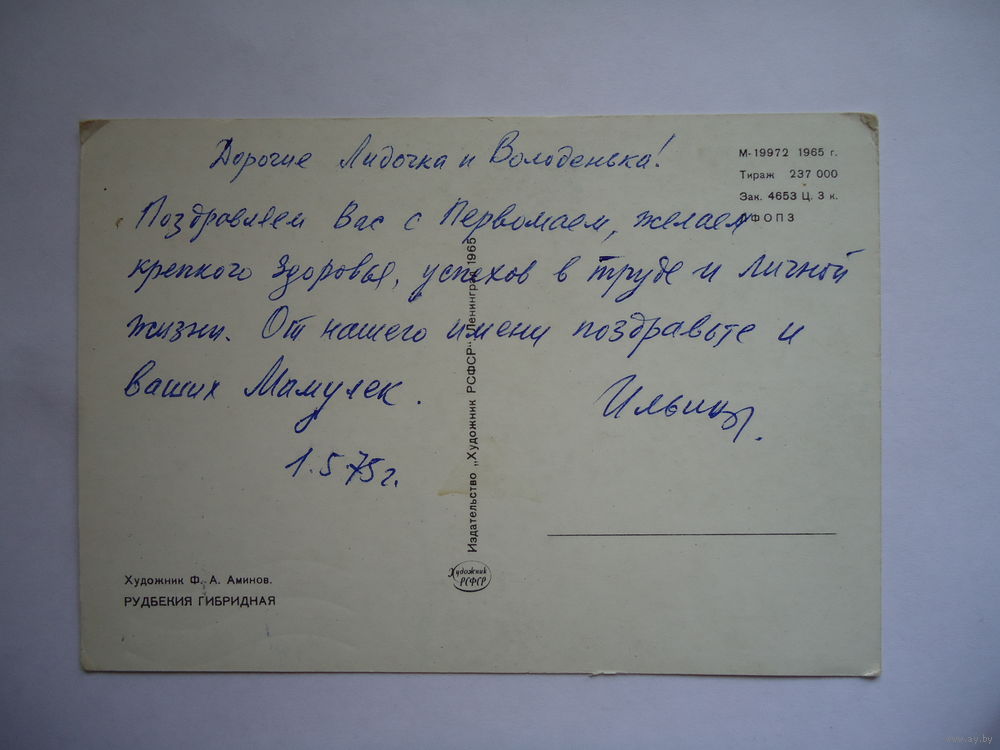 Дорогие Лидочка и Володенька!
Поздравляем Вас с Первомаем, желаем
крепкого здоровья, успехов в труде и личной
жизни. От нашего имени поздравьте и
ваших Мамулек.
Ильины.
1.5.75г.
М-19972 1965 г.
Тираж 237 000
Зак. 4653 Ц. 3 к.
ЛФОПЗ
Издательство „Художник РСФСР“ Ленинград 1965
Художник РСФСР
Художник Ф. А. Аминов.
РУДБЕКИЯ ГИБРИДНАЯ
www.ay.by